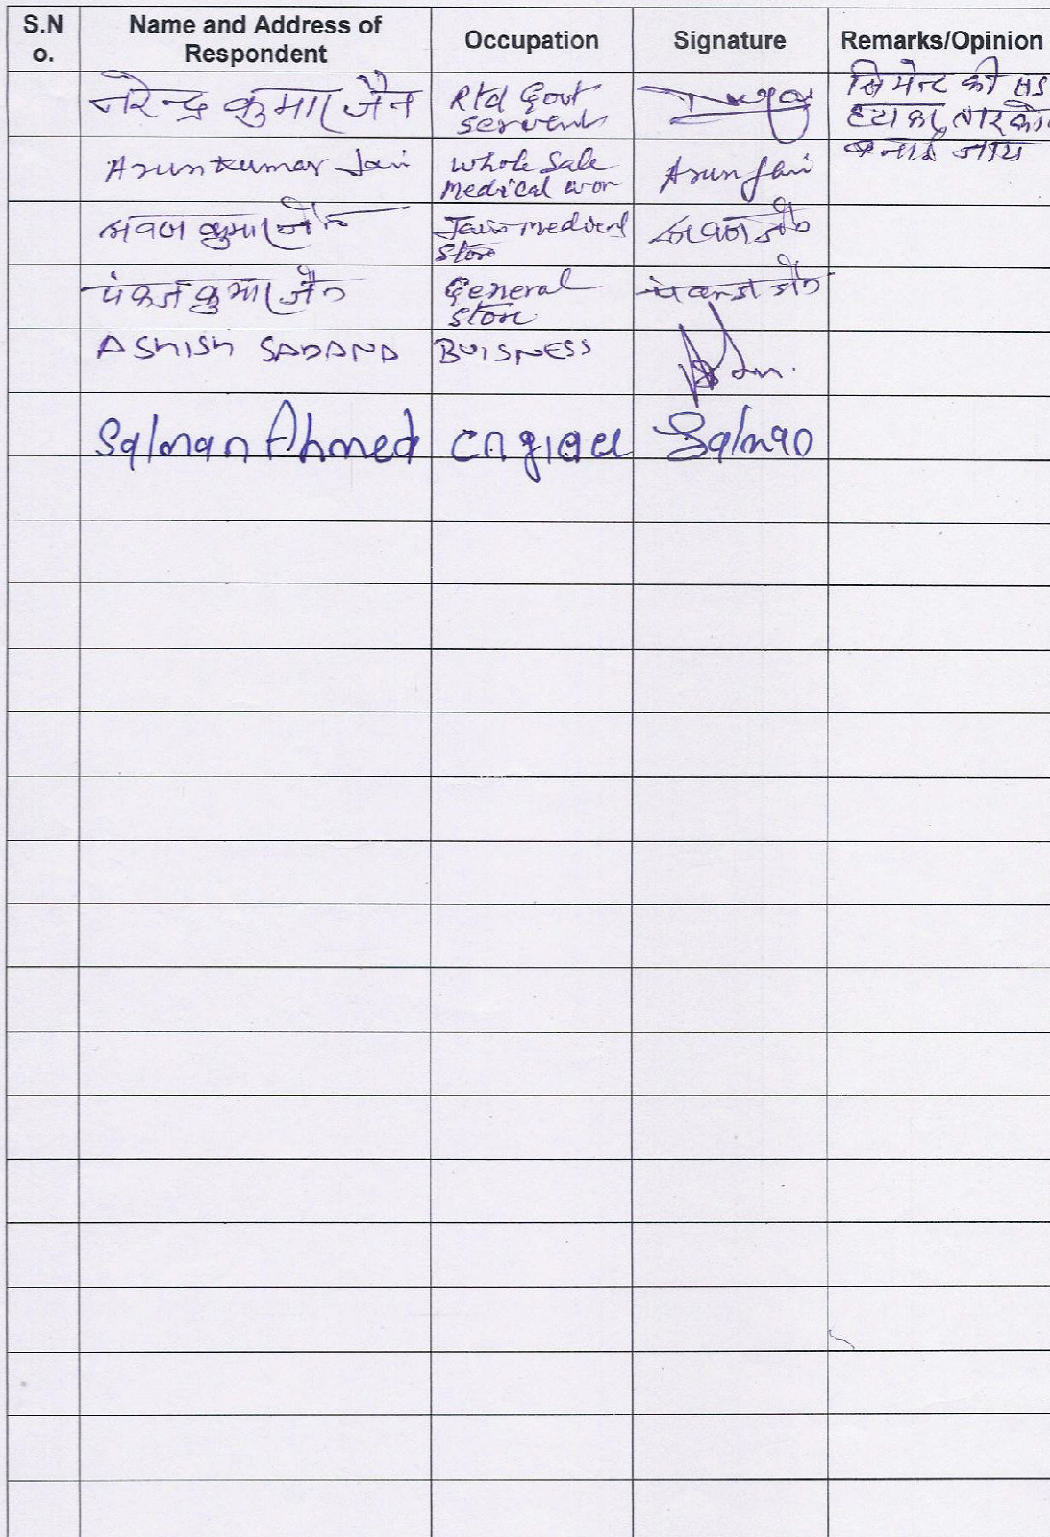 S.N
o.
Name and Address of
Respondent
Occupation
Signature
Remarks/Opinion
नरेन्द्र कुमार जैन
Rtd Govt
servent
सिमेन्ट की सड
हटा कर, तारको
बनाई जाय
Arun Kumar Jain
Whole Sale
Medical wor
Arun Jain
कुमार जैन
Jain medical
Store
जैन
पंकज कुमार जैन
General
Store
पंकज जैन
ASHISH SADANA
BUISNESS
Salman Ahmed
Salman